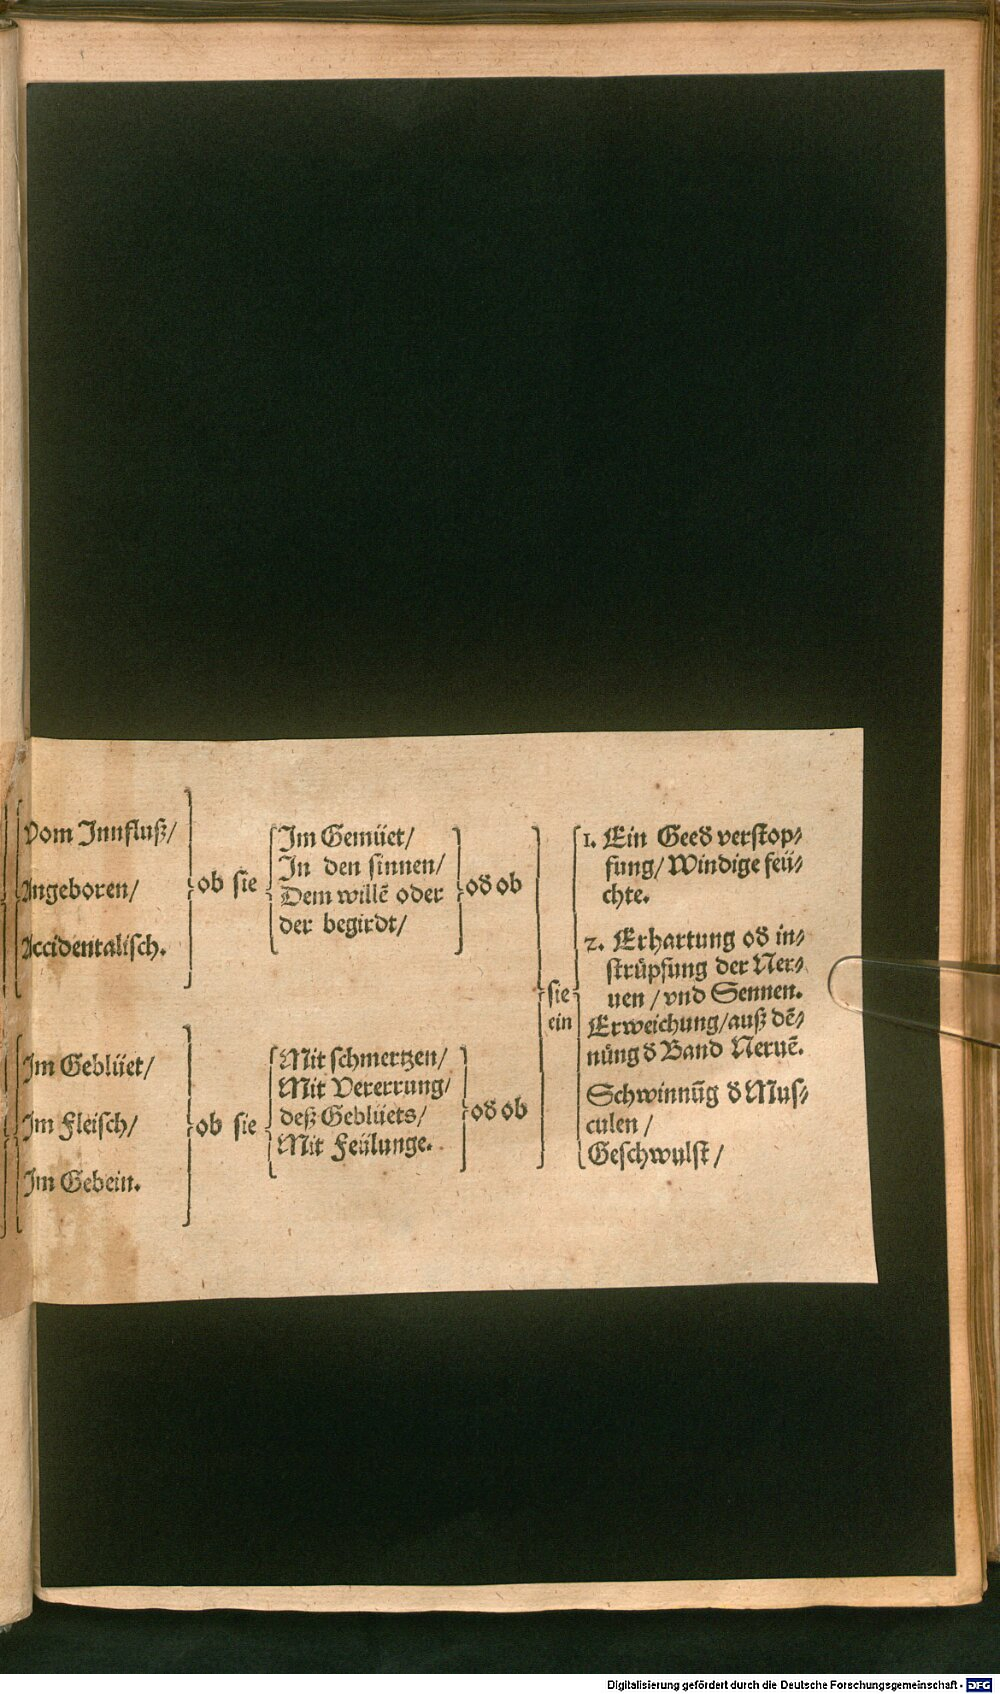 Vom Jnnfluß/
Angeboren/
Accidentalisch.
ob sie
Jm Gemüet/
Jn den sinnen/
Dem willẽ oder
der begirdt/
od ob
Jm Geblüet/
Jm Fleisch/
Jm Gebein.
ob sie
Mit schmertzen/
Mit Vererrung/
deß Geblüets/
Mit Feülunge.
od ob
sie
ein
1. Ein Geed verstop⸗
fung/ Windige feü⸗
chte.
2. Erhartung od in⸗
strüpfung der Ner⸗
uen / vnd Sennen.
Erweichung/ auß dẽ⸗
nũng d Band Neruẽ.
Schwinnũg d Mus⸗
culen /
Geschwulst /
Digitalisierung gefördert durch die Deutsche Forschungsgemeinschaft - DFG